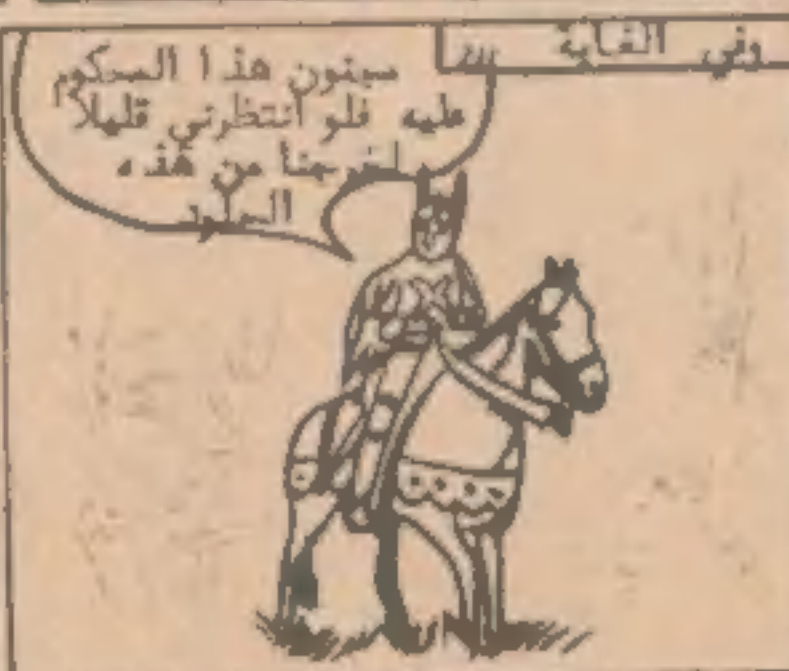 وفي الغابة ...
مجنون هذا المحكوم
عليه فلو انتظرني قليلاً
لخرجنا من هذه